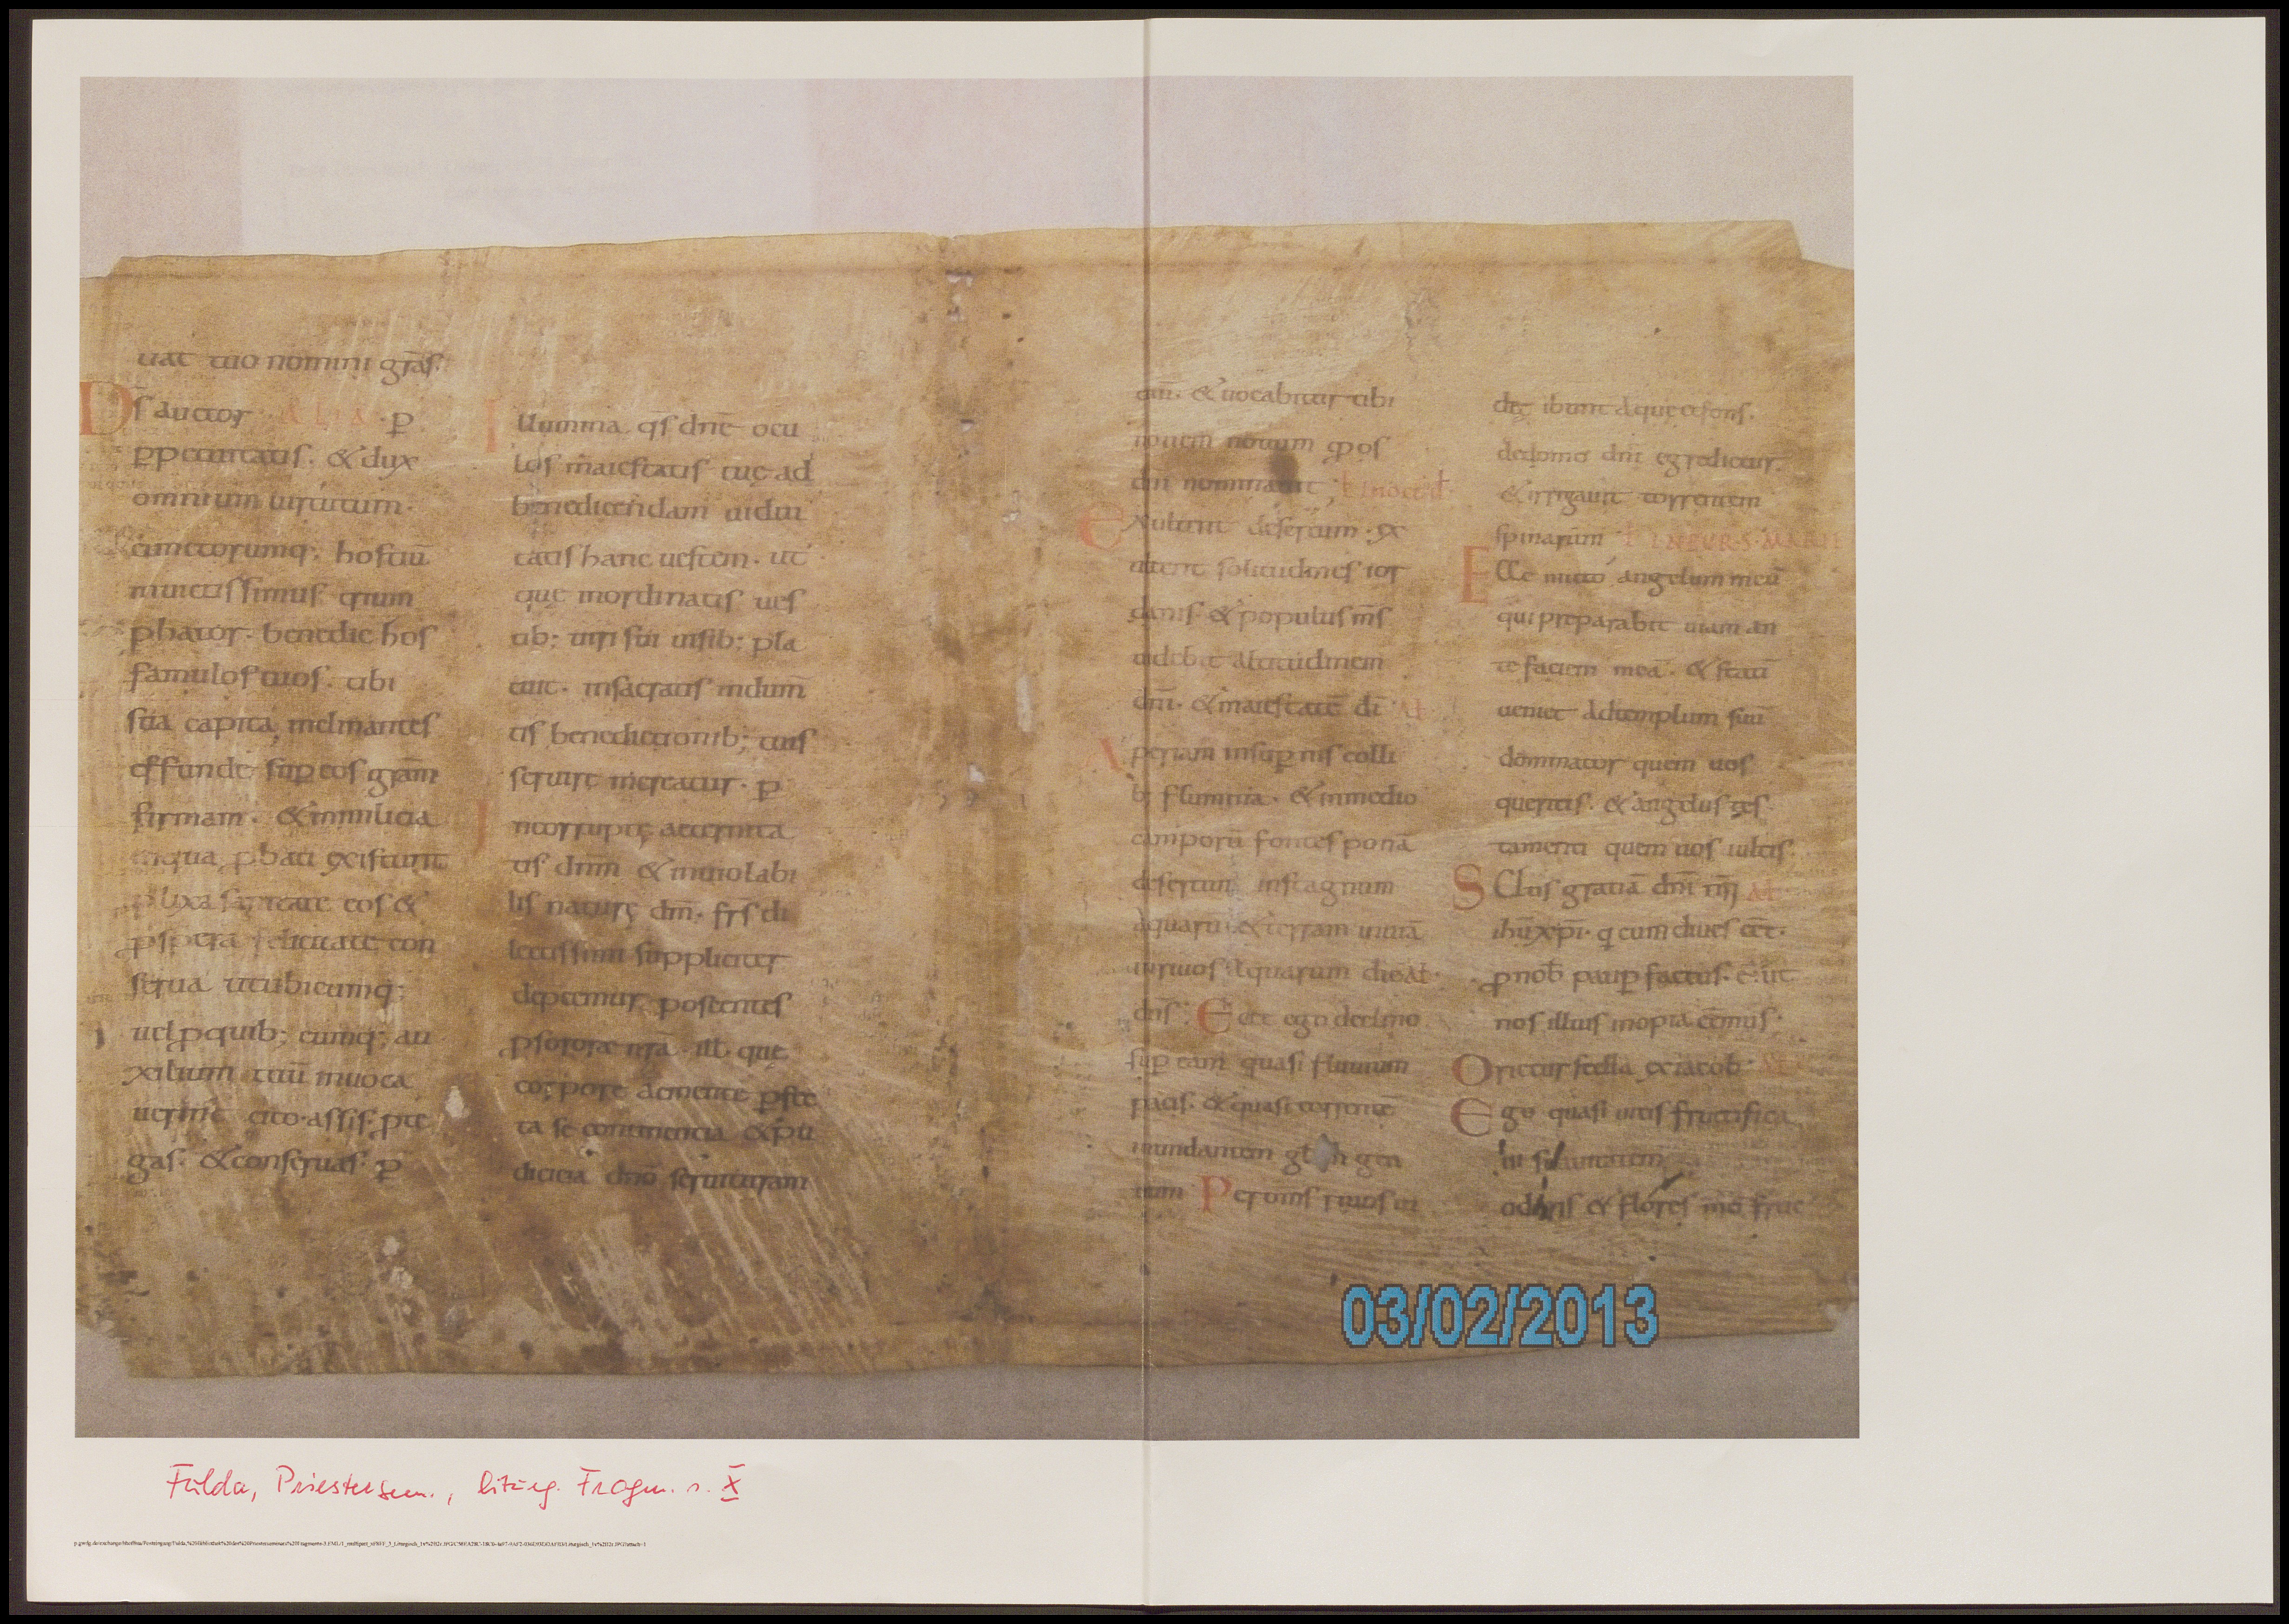 uat tuo nomini gr̄as.
D̄s auctor ALIA · p̱
ꝑpetuitatis. & dux
omnium uirtutum.
cunctorumq; hostiū
inuictissimus trium
phator. benedic hos
famulos tuos. tibi
sua capita inclinantes
effunde suꝑ eos grām
firmam. & in milicia
in qua ꝓbati existunt
ꝓlixa sanitate eos &
ꝓspera felicitate con
serua ut ubicumq;
uel ꝓ quib; cumq; au
xilium tuū inuoca
uerint cito assis. ꝓte
gas. & conseruas. p̱
Illumina q̄s dnē ocu
los maiestatis tuę ad
benedicendam uidui
tatis hanc uestem. ut
quę in ordinatis ues
tib; uiri sui uisib; pla
cuit. in sacratis indum̄
tis benedictionib; tuis
seruire mereatur. p̱
Incorruptę aeternita
tis dnm̄ & inuiolabi
lis naturę dm̄. frs̄ di
lectissimi suppliciter
dep̱cemur poscentes
ꝓ sorore nr̄a. ill. quę
corpore ac mente ꝓfes
ta se continentia & pu
dicicia dnō seruituram
am. & uocabitur tibi
nomen nouum qđ os
dnī nominauit;
Exultent desertum. ex
ultent solitudines ior
danis. & populus m̄s
uidebit altitudinem
dnī. & maiestatē dī Aƚ
Aperiam in suꝑnis colli
b; flumina. & in medio
camporū fontes ponā
desertum in stagnum
aquarū. & terram inuiā
in riuos aquarum dic Aƚ
dns̄; Ecce ego declino
suꝑ eam quasi fluuium
pacis. & quasi torrentē
inundantem gƚam gen
tium
die ibunt aquę & fons.
de domo dnī egredietur.
& irrigauit torrentem
spinarum
Ecce mitto angelum meū
qui preparabit uiam an
te faciem meā. & statī
ueniet ad templum suū
dominator quem uos
queritis. & angelus tes
tamenti quem uos uultis.
Scitis gratiā dnī nr̄i Aƚ
ihū xpī. q̄ cum diues eēt.
ꝓ nob̄ pauꝑ factus. ē. ut
nos illius inopia
Orietur stella ex iacob Aƚ
Ego quasi uitis fructifica
ui suauitatem
odoris & flores mei fruc
03/02/2013
Fulda, Priestersem., liturg. Fragm. s. X